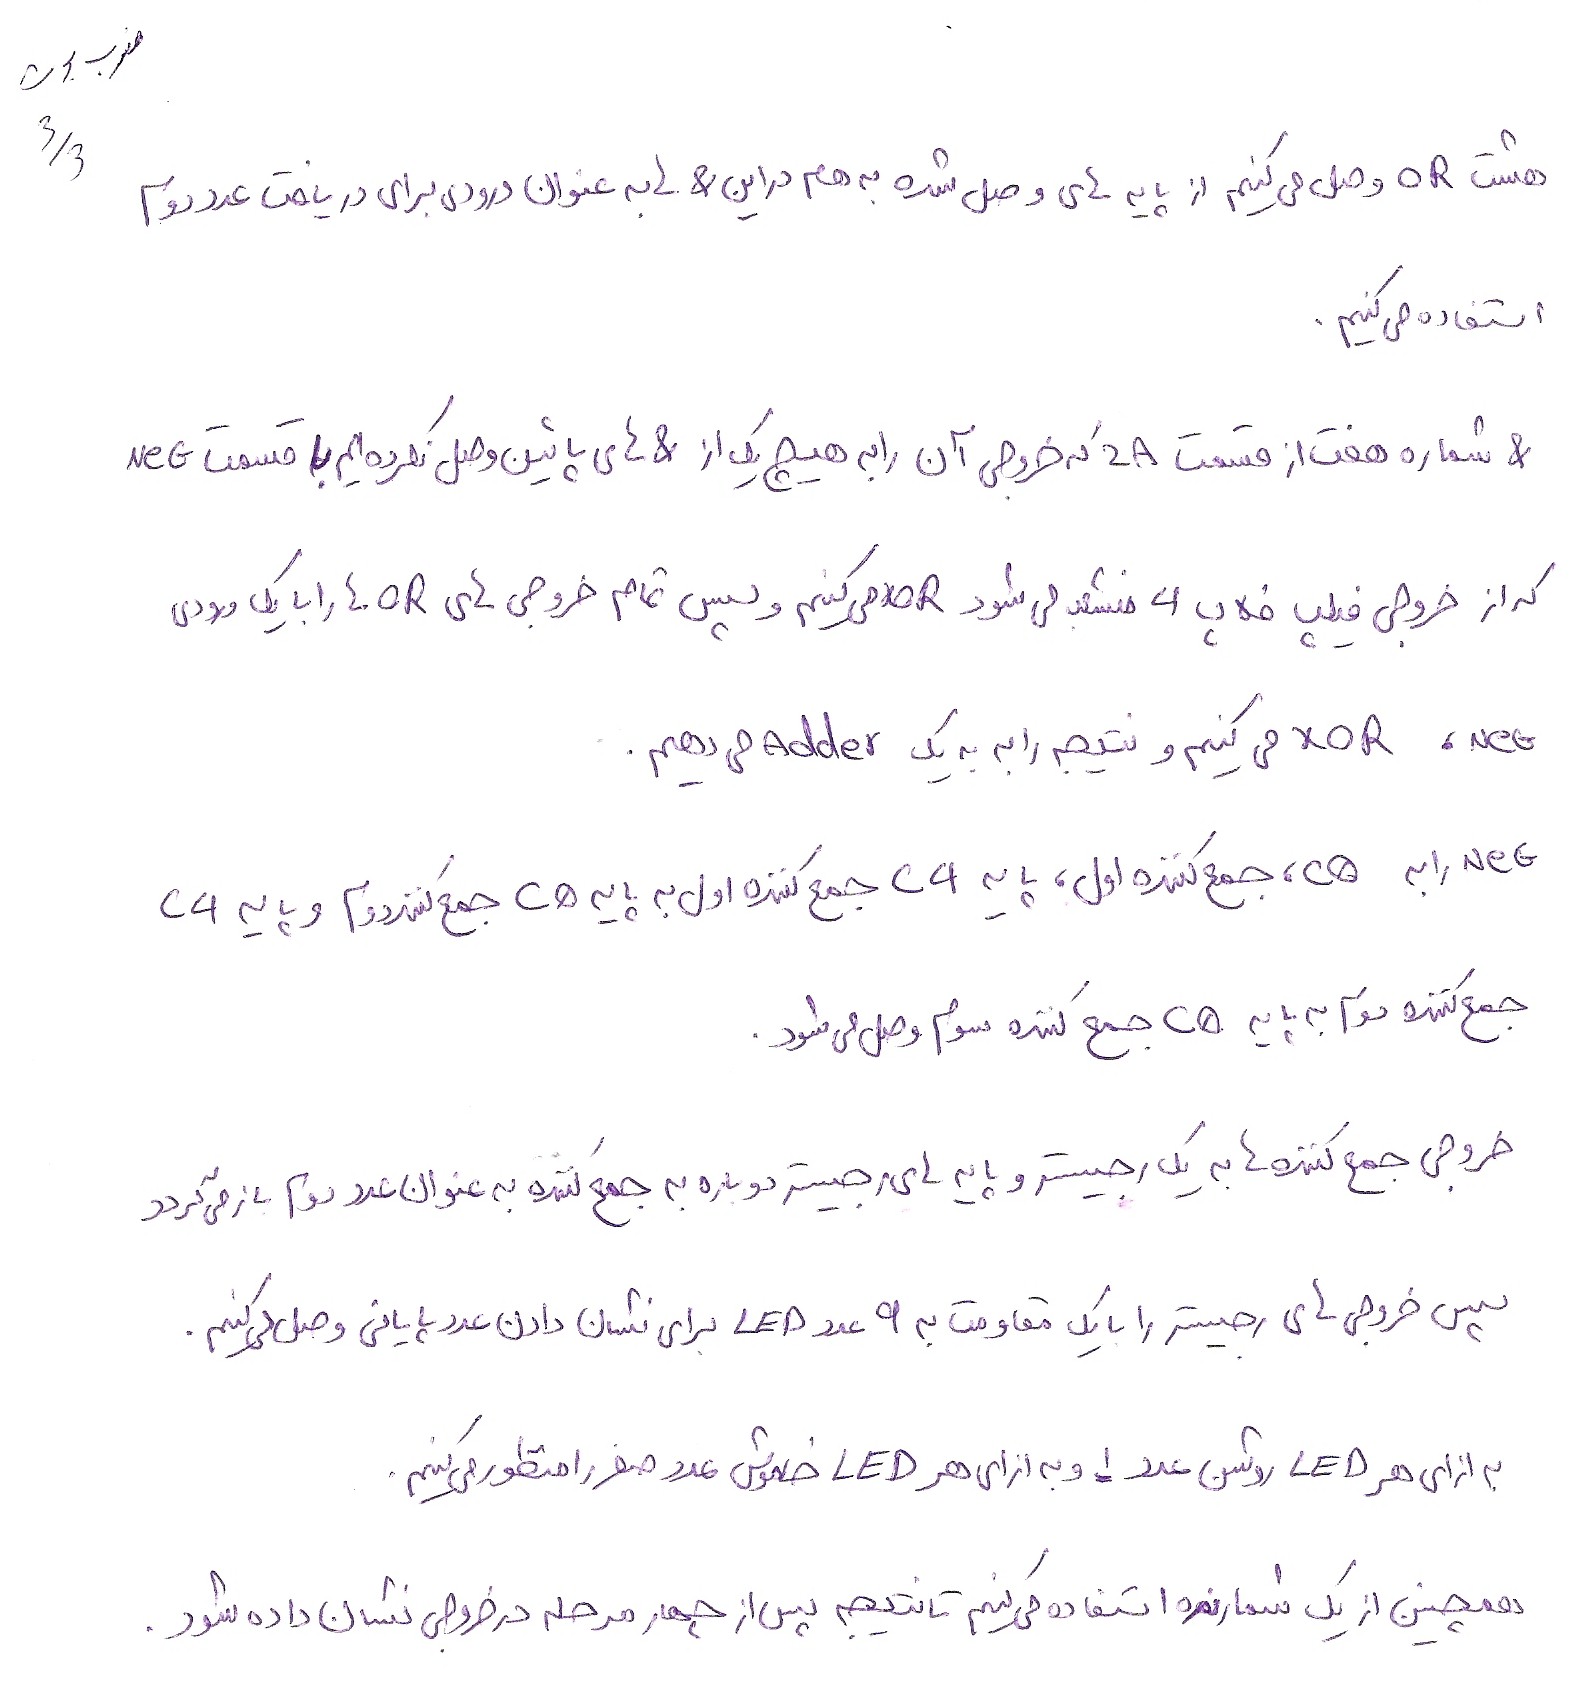 ضرب بوث
3/3
هشت OR وصل می کنیم از پایه های وصل شده به هم در این & ها به عنوان ورودی برای دریافت عدد دوم
استفاده می کنیم .
& شماره هفت از قسمت 2A که خروجی آن را به هیچ یک از & های پائین وصل نکرده ایم با قسمت NeG
که از خروجی فیلیپ فلاپ 4 منشعب می شود XOR می کنیم و سپس تمام خروجی های OR ها را با یک ورودی
NeG ، XOR می کنیم و نتیجه را به به یک Adder می دهیم .
NeG را به C0 ، جمع کننده اول ، پایه C4 جمع کننده اول به پایه C0 جمع کننده دوم و پایه C4
جمع کننده دوم به پایه C0 جمع کننده سوم وصل می شود .
خروجی جمع کننده ها به یک رجیستر و پایه های رجیستر دوباره به جمع کننده به عنوان عدد دوم باز می گردد
سپس خروجی های رجیستر را با یک مقاومت به 9 عدد LED برای نشان دادن عدد پایانی وصل می کنیم .
به ازای هر LED روشن عدد 1 و به ازای هر LED خاموش عدد صفر را منظور می کنیم .
همچنین از یک شمارنده استفاده می کنیم تا نتیجه پس از چهار مرحله در خروجی نشان داده شود .